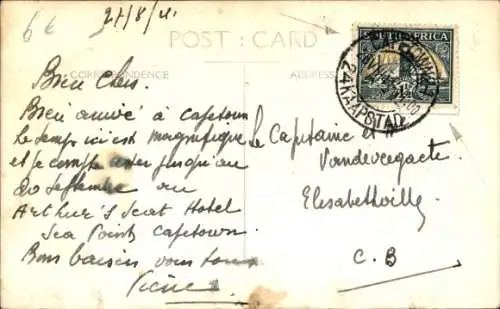 6€
27/8/41
POST : CARD
CORRESPONDENCE
ADDRESS
SOUTH AFRICA
CAPE TOWN
24 KAAPSTAD
Bien Chers.
Bien arrivé à capetown
Le temps ici est magnifique
et je compte rester jusqu'au
20 septembre au
Arthur's Seat Hotel
Sea Point capetown.
Bons baisers vous tous
Pierre
Le Capitaine et
Vandevegaete
Elisabethville
C.B